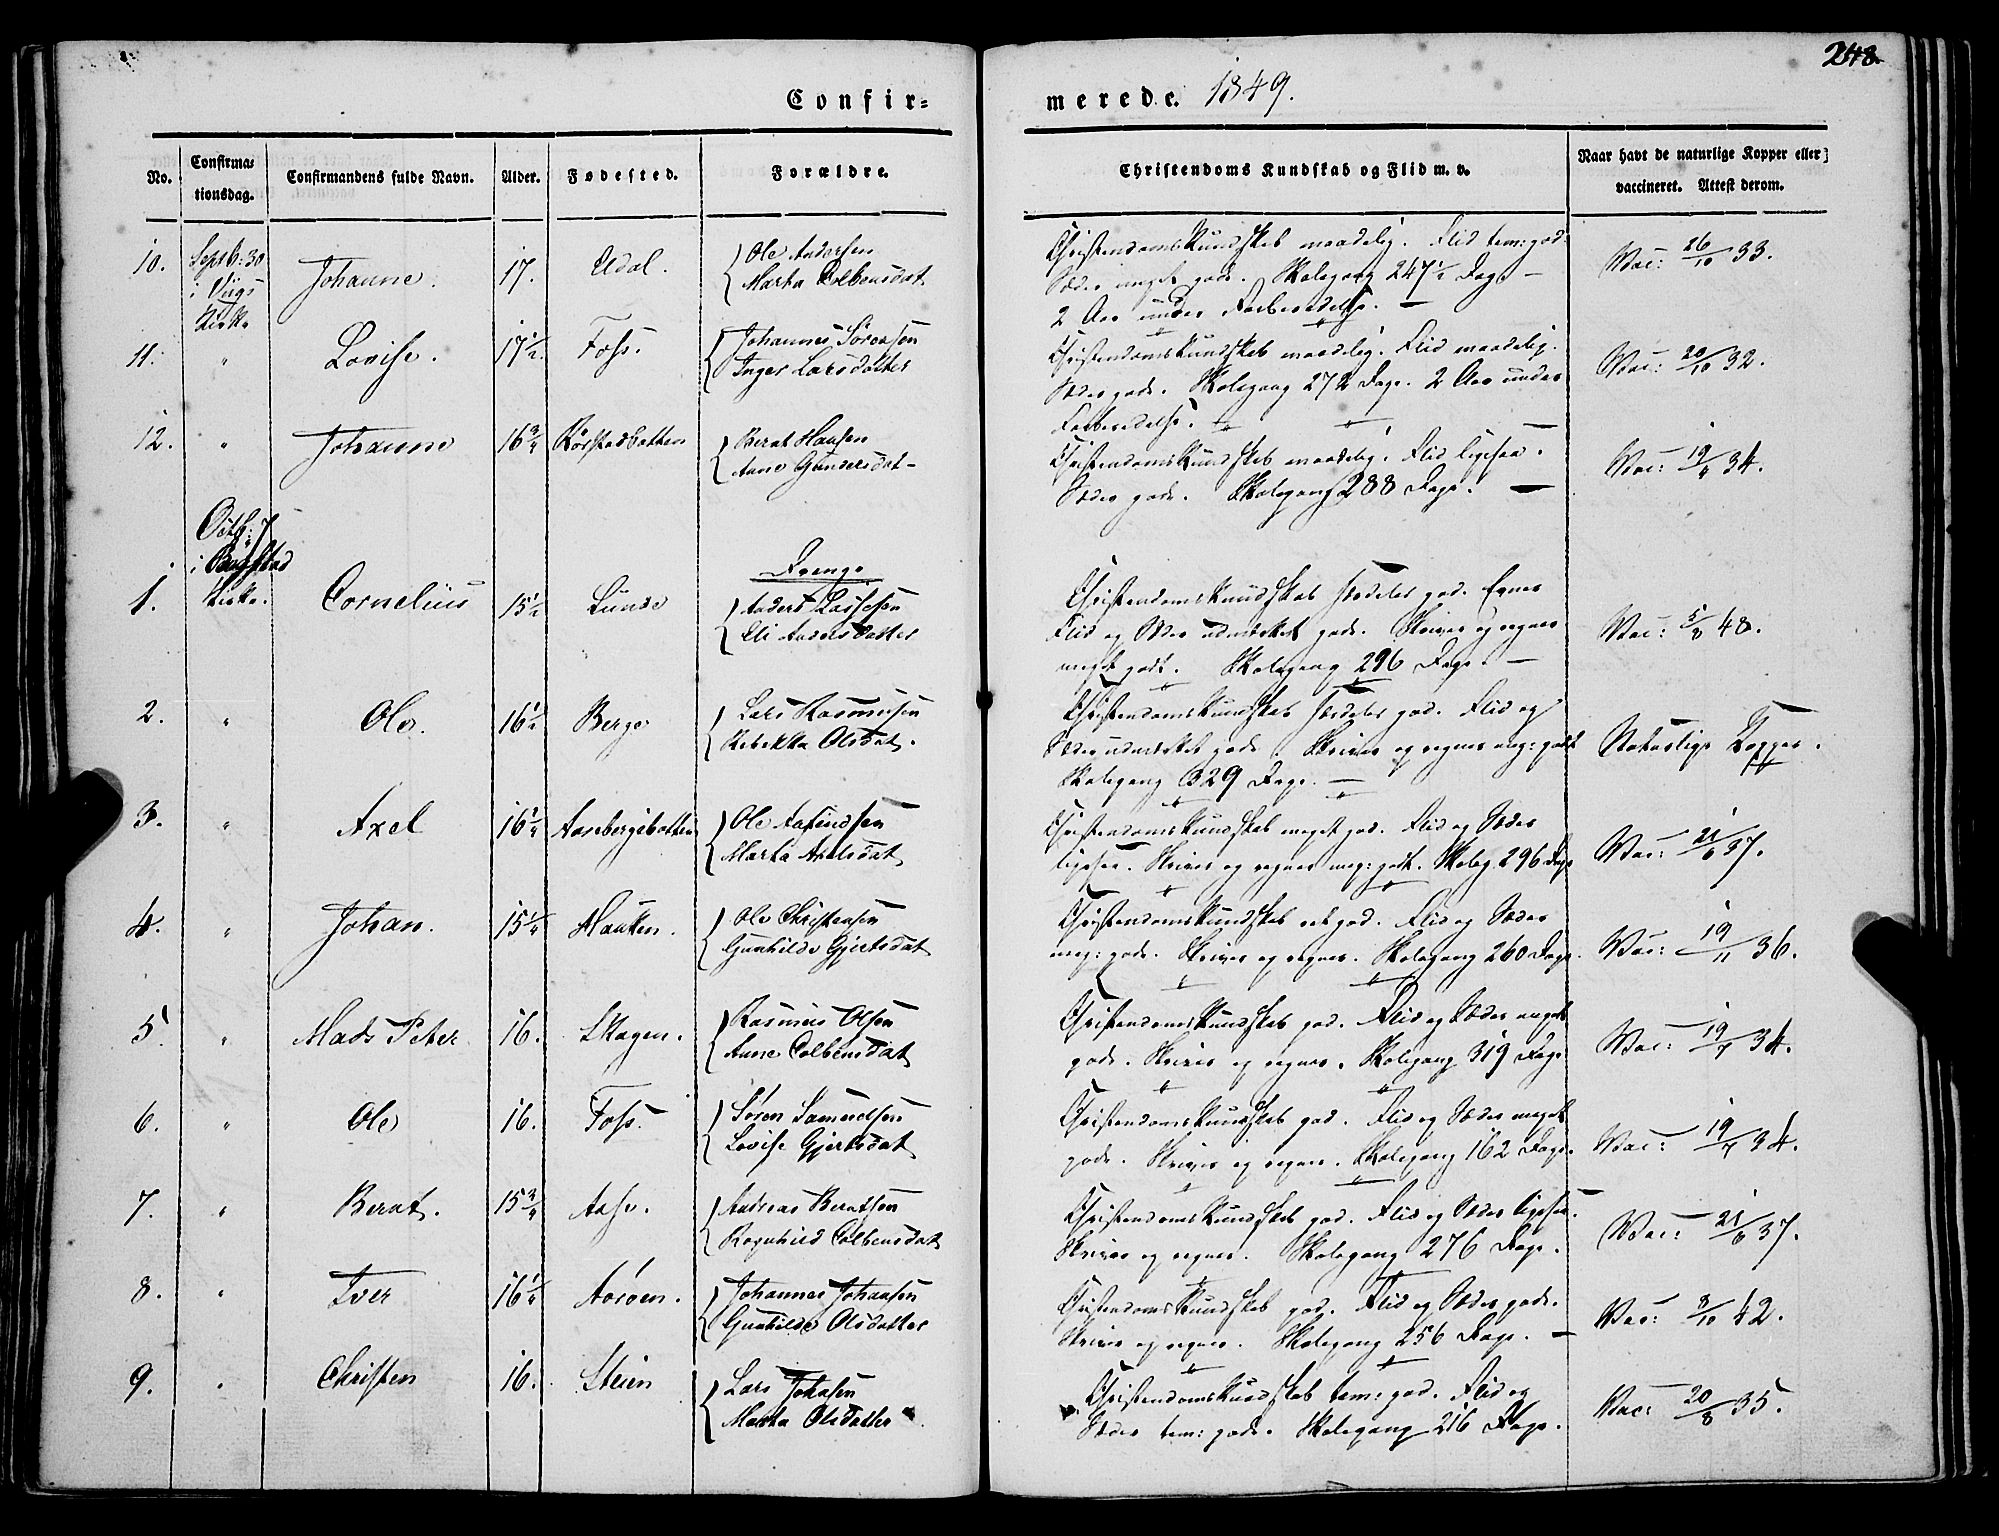 248.
Confir-
merede. 1849.
No.
Confirma-
tionsdag.
Confirmandens fulde Navn.
Alder.
Fødested.
Forældre.
Christendoms Kundskab og Flid m. v.
Naar havt de naturlige Kopper eller
vaccineret. Attest derom.
10. Septb: 30 i Kirke Johanne. 17. Udal.
Ole Andersen
Marta Colbensdat
Christendomskundskab maadelig. Flid tem: god
Sæder meget gode. Skolegang 247½ Dage —
2 Aar under Forberedelse. —
Vac: 26/10 33.
11. " Lovise. 17½ Foss.
Johannes Sörensen
Inger Larsdatter
Christendomskundskab maadelig. Flid maadelig.
Sæder gode. Skolegang 272 Dage. 2 Aar under
Forberedelse.
Vac: 20/10 32.
12. " Johanne 16¾ Rörstadbotten
Bernt Hansen
Anne Gundersdat
Christendomskundskab maadelig. Flid ligesaa.
Sæder gode. Skolegang 288 Dage. —
Vac: 34.
Octb: 7
i
Kirke.
Drenge
1. Cornelius 15½ Lunde
Anders Lassesen
Eli Andersdatter
Christendomskundskab særdeles god. Evner
Flid og Sæder udmærket gode. Skriver og regner
meget godt. Skolegang 296 Dage. —
Vac: 5/8 48.
2. " Ole. 16½ Berge
Lars Rasmussen
Rebekka Olsdat.
Christendomskundskab særdeles god. Flid og
Sæder udmærket gode. Skriver og regner meg: godt
Skolegang 329 Dage. —
Naturlige Kopper.
3. " Axel 16½ Aasebergsbotten
Ole Aamundsen
Marta Axelsdat
Christendomskundskab meget god. Flid og Sæder
ligesaa. Skriver og regner meg: godt. Skoleg. 296 Dage
Vac: 21/6 37.
4. " Johan. 15¼ Hauken.
Ole Christensen
Gunhilde Gjertsdat
Christendomskundskab ret god. Flid og Sæder
meg: gode. Skriver og regner. Skolegang 260 Dage.
Vac: 19/11 36.
5. " Mads Peter 16. Skagen.
Rasmus Olsen
Anne Colbensdat
Christendomskundskab god. Flid og Sæder meget
gode. Skriver og regner. Skolegang 319 Dage
Vac: 19/7 34.
6. " Ole 16. Foss.
Sören Samuelsen
Lovise Gjertsdat
Christendomskundskab god. Flid og Sæder meget
gode. Skriver og regner. Skolegang 162 Dage.
Vac: 19/7 34.
7. " Bernt. 15¾ Aase.
Andreas Berntsen
Ragnhild Colbensdat
Christendomskundskab god. Flid og Sæder ligesaa.
Skriver og regner. Skolegang 276 Dage.
Vac: 21/6 37.
8. " Iver 16¼ Aaröen.
Johannes Johansen
Gunhilde Olsdatter
Christendomskundskab god. Flid og Sæder gode.
Skriver og regner. Skolegang 256 Dage. —
Vac: 8/10 42.
9. " Christen 16. Steien
Lars Johnsen
Marta Olsdatter
Christendomskundskab tem: god. Flid og
Sæder tem: gode. Skolegang 216 Dage.
Vac: 20/8 35.